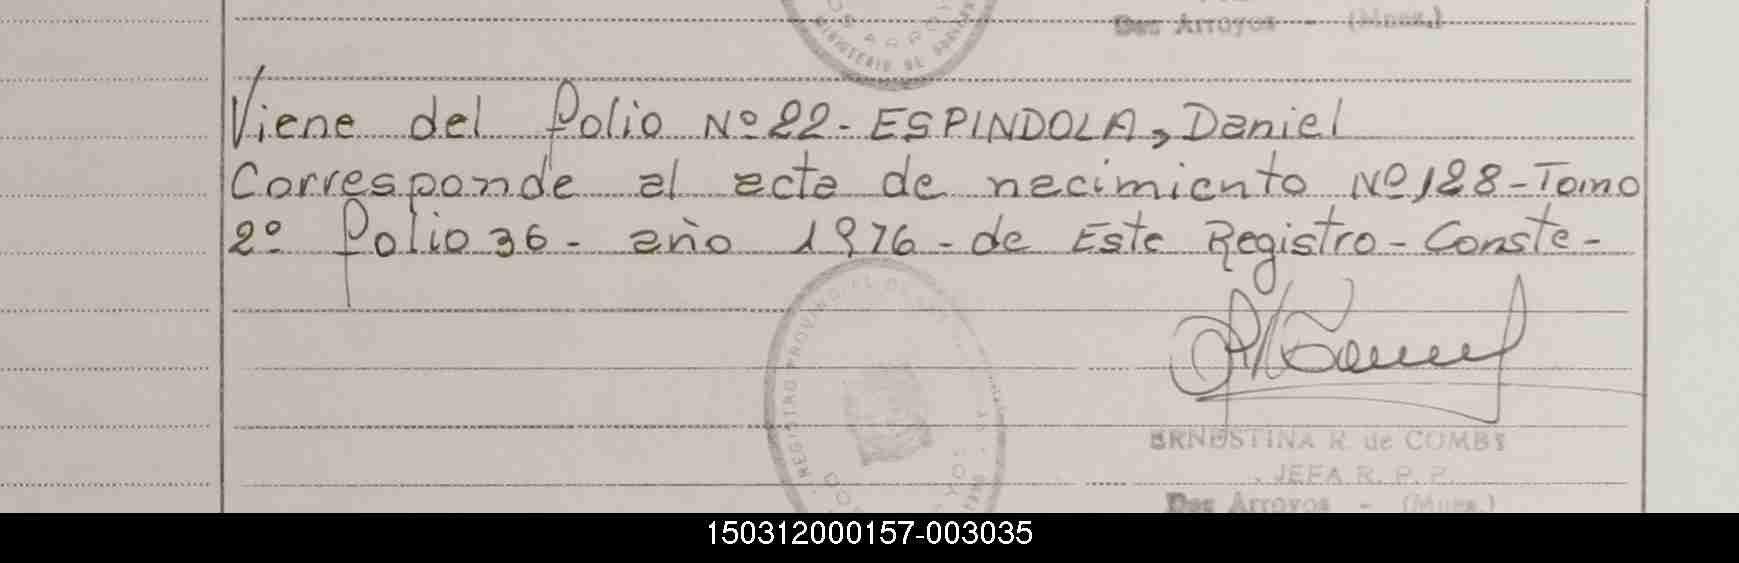 Dos Arroyos - (Mnes.)
Viene del folio Nº 22 - ESPINDOLA, Daniel
Corresponde al acta de nacimiento Nº 128 - Tomo
2º folio 36 - año 1976 - de Este Registro - Conste -
REGISTRO PROVINCIAL DE LAS
ERNESTINA R. de COMBS
JEFA R. P. P.
Dos Arroyos - (Mnes.)
150312000157-003035